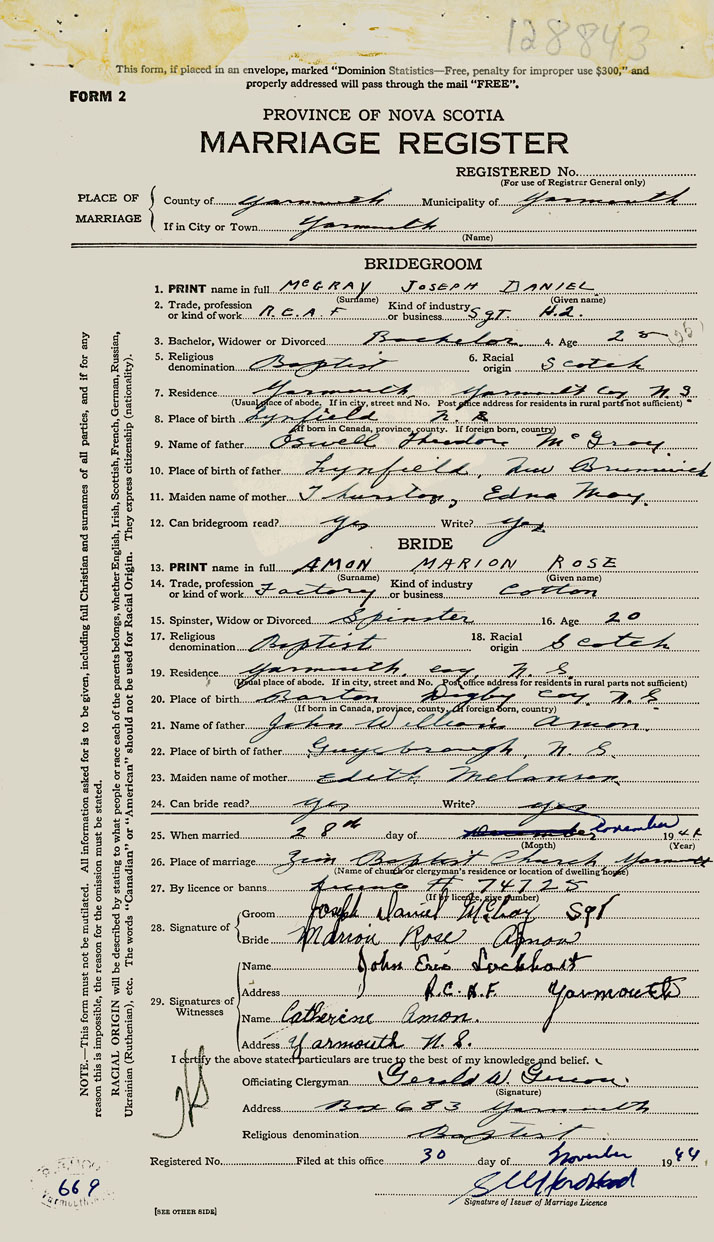 128843
This form, if placed in an envelope, marked "Dominion Statistics—Free, penalty for improper use $300," and
properly addressed will pass through the mail "FREE".
FORM 2
PROVINCE OF NOVA SCOTIA
MARRIAGE REGISTER
REGISTERED No.
(For use of Registrar General only)
PLACE OF MARRIAGE
County of Yarmouth Municipality of Yarmouth
If in City or Town Yarmouth
(Name)
BRIDEGROOM
1. PRINT name in full McGRAY JOSEPH DANIEL
(Surname) (Given name)
2. Trade, profession or kind of work R.C.A.F Kind of industry or business Sgt. H.Q.
3. Bachelor, Widower or Divorced Bachelor 4. Age 25
5. Religious denomination Baptist 6. Racial origin Scotch
7. Residence Yarmouth, Yarmouth Coy N.S
(Usual place of abode. If in city, street and No. Post office address for residents in rural parts not sufficient)
8. Place of birth Lynfield N.B
(If born in Canada, province, county. If foreign born, country)
9. Name of father Oswell Theodore McGray
10. Place of birth of father Lynfield, New Brunswick
11. Maiden name of mother Thurston, Edna May.
12. Can bridegroom read? Yes Write? Yes
BRIDE
13. PRINT name in full AMON MARION ROSE
(Surname) (Given name)
14. Trade, profession or kind of work Factory Kind of industry or business Cotton
15. Spinster, Widow or Divorced Spinster 16. Age 20
17. Religious denomination Baptist 18. Racial origin Scotch
19. Residence Yarmouth, coy, N.S.
(Usual place of abode. If in city, street and No. Post office address for residents in rural parts not sufficient)
20. Place of birth Barton Digby Coy. N.S
(If born in Canada, province, county. If foreign born, country)
21. Name of father John William Amon.
22. Place of birth of father Guysbrough, N.S.
23. Maiden name of mother Edith Melanson
24. Can bride read? yes Write? yes
25. When married 28th day of November 1944
(Month) (Year)
26. Place of marriage Zion Baptist Church, Yarmouth
(Name of church or clergyman's residence or location of dwelling house)
27. By licence or banns License # 74725
(If by licence, give number)
28. Signature of
Groom Joseph Daniel McGray Sgt
Bride Marion Rose Amon
29. Signatures of Witnesses
Name John Eric Lockhart
Address R.C.A.F. Yarmouth
Name Catherine Amon.
Address Yarmouth N.S.
I certify the above stated particulars are true to the best of my knowledge and belief.
Officiating Clergyman Gerald W.
(Signature)
Address Box 683 Yarmouth
Religious denomination Baptist
Registered No. Filed at this office 30 day of November 1944
Signature of Issuer of Marriage Licence
[SEE OTHER SIDE]
669
NOTE.—This form must not be mutilated. All information asked for is to be given, including full Christian and surnames of all parties, and if for any
reason this is impossible, the reason for the omission must be stated.
RACIAL ORIGIN will be described by stating to what people or race each of the parents belongs, whether English, Irish, Scottish, French, German, Russian,
Ukrainian (Ruthenian), etc. The words "Canadian" or "American" should not be used for Racial Origin. They express citizenship (nationality).